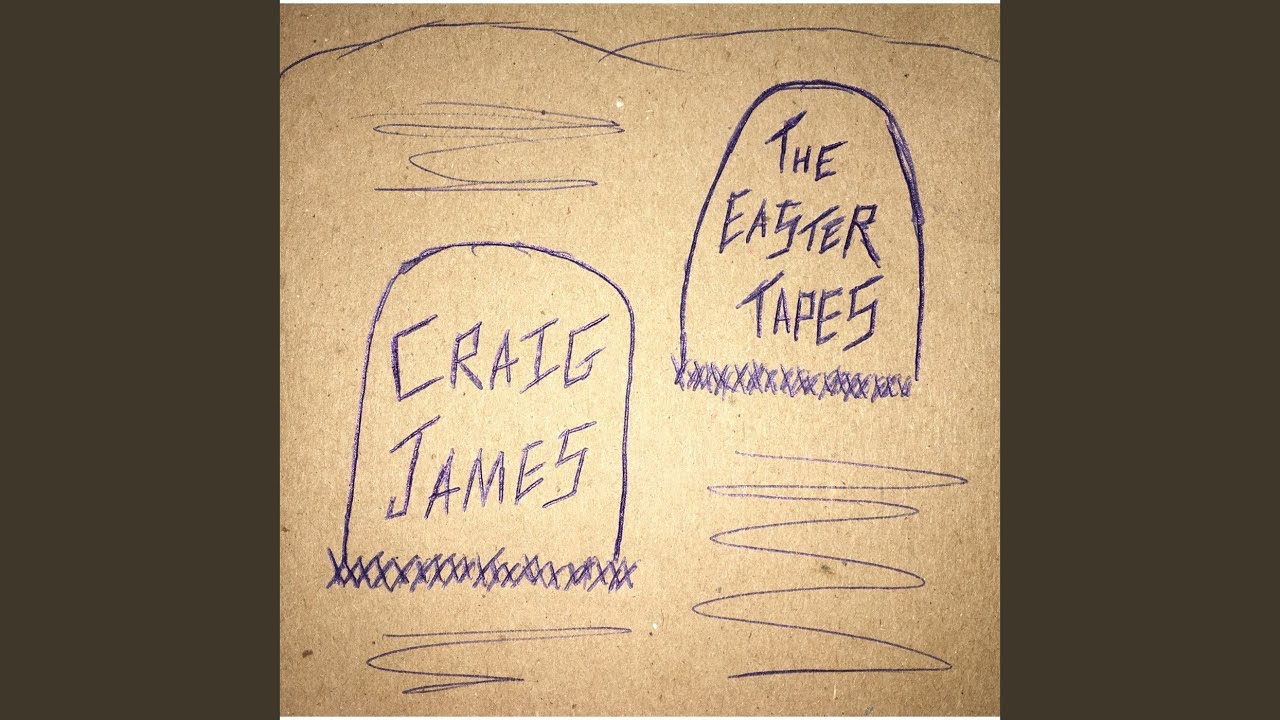 THE
EASTER
TAPES
CRAIG
JAMES